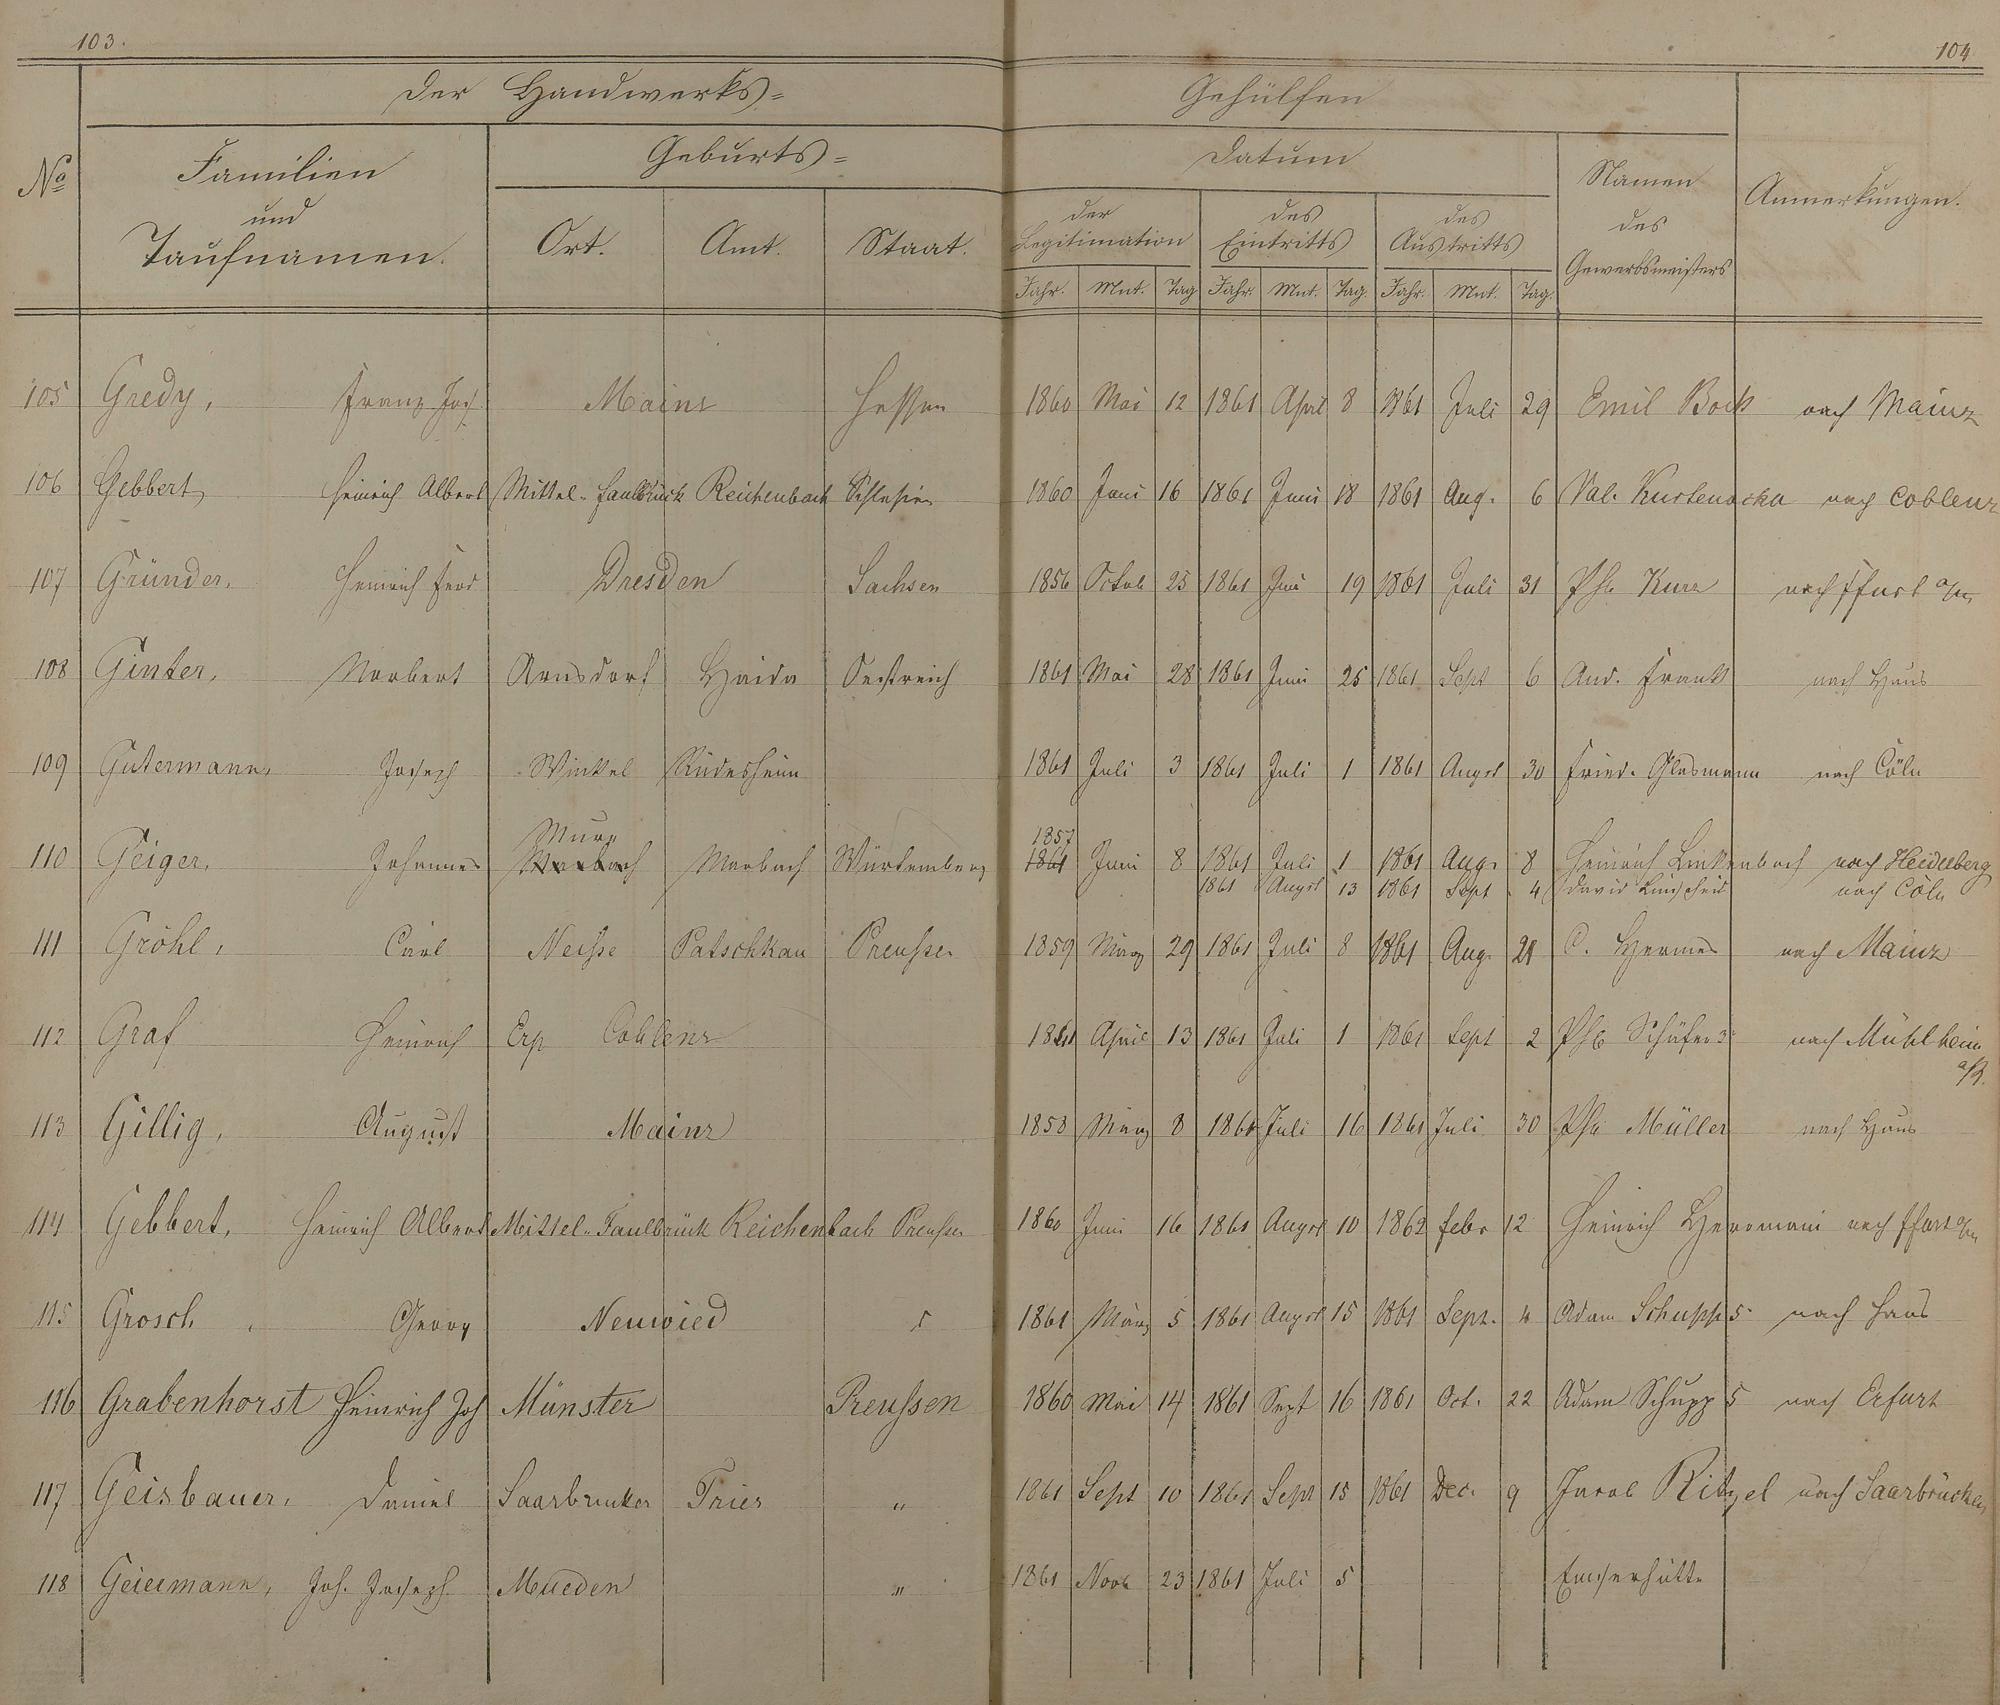 103.
104
Der Handwerks= Gehülfen
No
Familien und Taufnamen.
Geburts=
Ort. Amt. Staat.
Datum
der Legitimation
des Eintritts
des Austritts
Jahr. Mnt. Tag Jahr. Mnt. Tag. Jahr. Mnt. Tag.
Namen des Gewerbsmeisters
Anmerkungen.
105 Gredy, Franz Jos. Mainz Hessen 1860 Mai 12 1861 April 8 1861 Juli 29 Emil Bock nach Mainz
106 Gebbert, Heinrich Albert Mittel-Faulbrück Reichenbach Schlesien 1860 Juni 16 1861 Juni 18 1861 Aug. 6 Val. nach Coblenz
107 Gründer, Heinrich Ferd Dresden Sachsen 1856 Octob 25 1861 Juni 19 1861 Juli 31 Ph. Kurz nach Ffurt a/m
108 Ginter, Norbert Arnsdorf Haida Oestreich 1861 Mai 28 1861 Juni 25 1861 Sept 6 And. Frank nach Haus
109 Gutermann, Joseph Winkel Rüdesheim 1861 Juli 3 1861 Juli 1 1861 Augst 30 Fried. Glasmann nach Cöln
110 Geiger, Johannes Marbach Murr Marbach Würtemberg 1861 1857 Juni 8 1861 Juli 1 1861 Aug. 8 Heinrich Linkenbach nach Heidelberg
1861 Augst 13 1861 Sept 4 David nach Cöln
111 Gröhl, Carl Neisse Patschkau Preußen 1859 März 29 1861 Juli 8 1861 Aug. 21 C. Hermes nach Mainz
112 Graf Heinrich Erp Coblenz 1861 April 13 1861 Juli 1 1861 Sept 2 Ph Schäfer 3r nach Mühlheim a/R.
113 Gillig, August Mainz 1858 März 8 1861 Juli 16 1861 Juli 30 Ph. Müller nach Haus
114 Gebbert, Heinrich Albert Mittel-Faulbrück Reichenbach Preußen 1860 Juni 16 1861 Augst 10 1862 Febr 12 Heinrich Herrmann nach Ffurt a/m
115 Grosch, Georg Neuwied 1861 März 5 1861 Augst 15 1861 Sept. 4 Adam Schupp 5r nach Haus
116 Grabenhorst Heinrich Joh Münster Preußen 1860 Mai 14 1861 Sept 16 1861 Oct. 22 Adam Schupp 5 nach Erfurt
117 Geisbauer, Daniel Saarbrucken Trier " 1861 Sept 10 1861 Sept 15 1861 Dec. 9 Jacob Ritzel nach Saarbrücken
118 Geiermann, Joh. Joseph Mueden " 1861 Novb 23 1861 Juli 5 Emserhütte